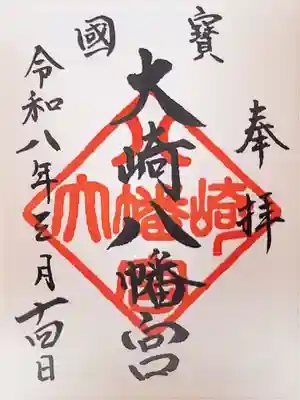 奉拝
國寶
大崎八幡宮
令和八年三月十四日
大幡崎